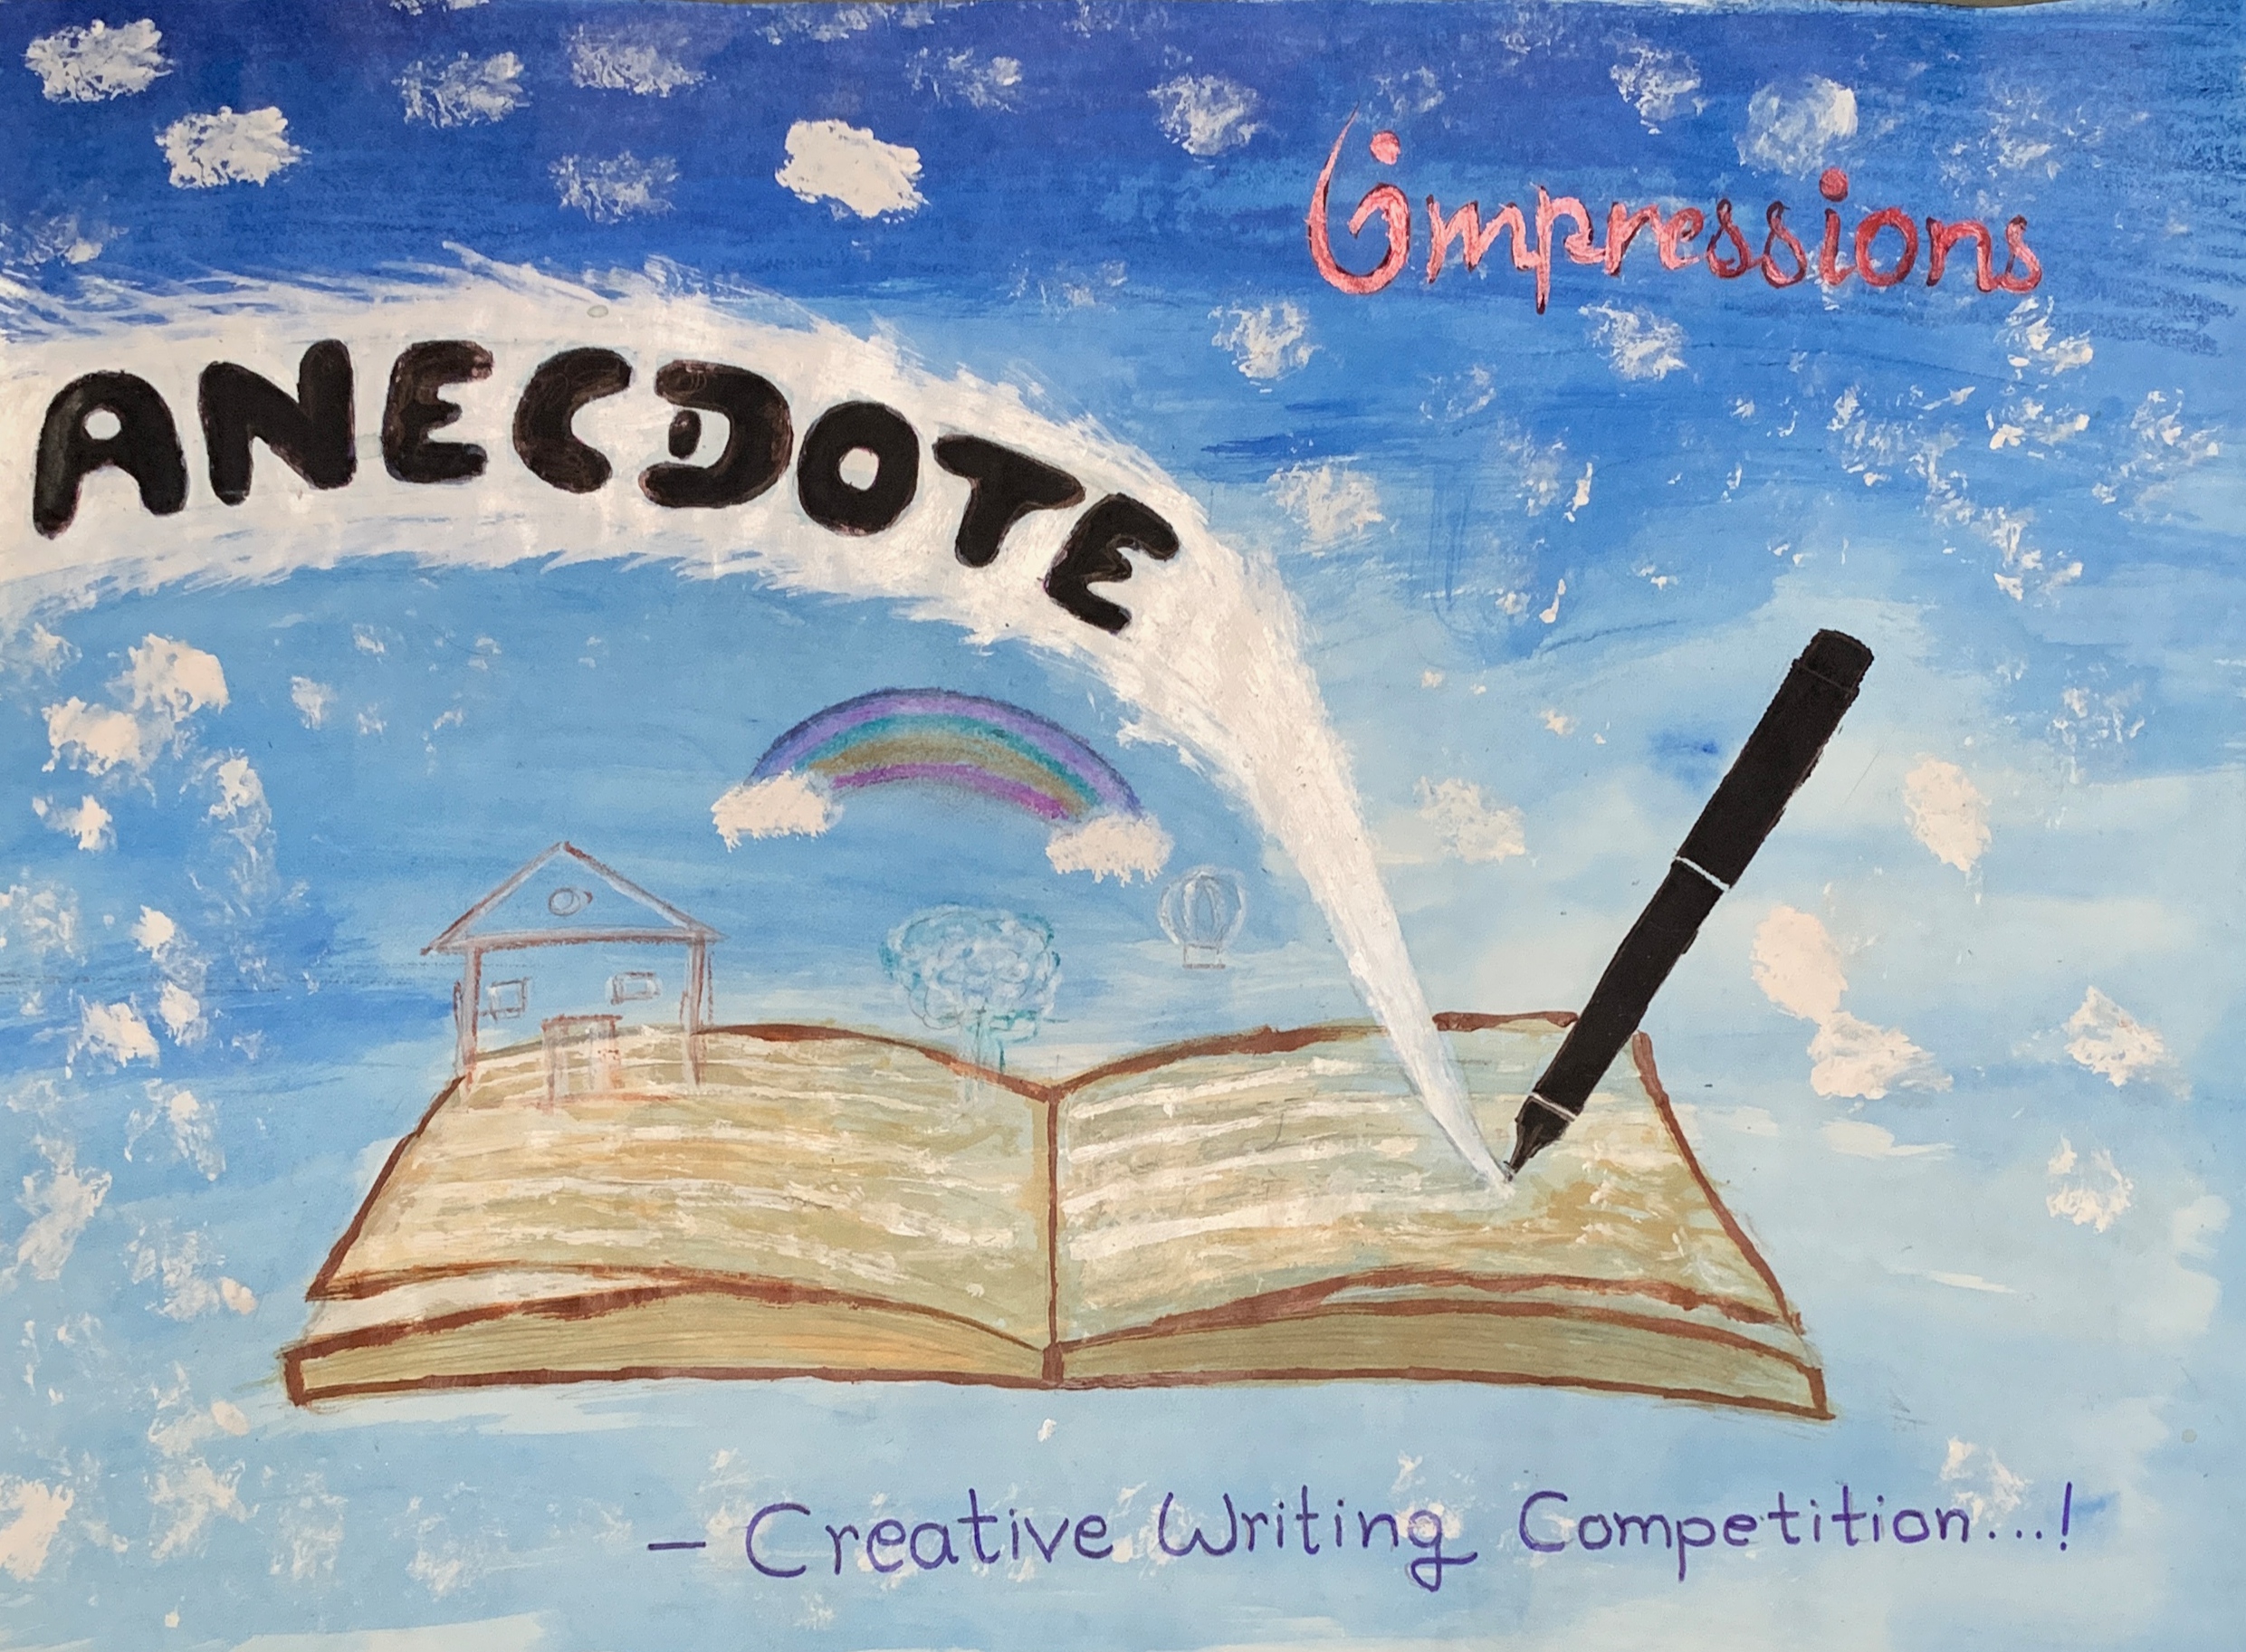 impressions
ANECDOTE
- Creative Writing Competition...!